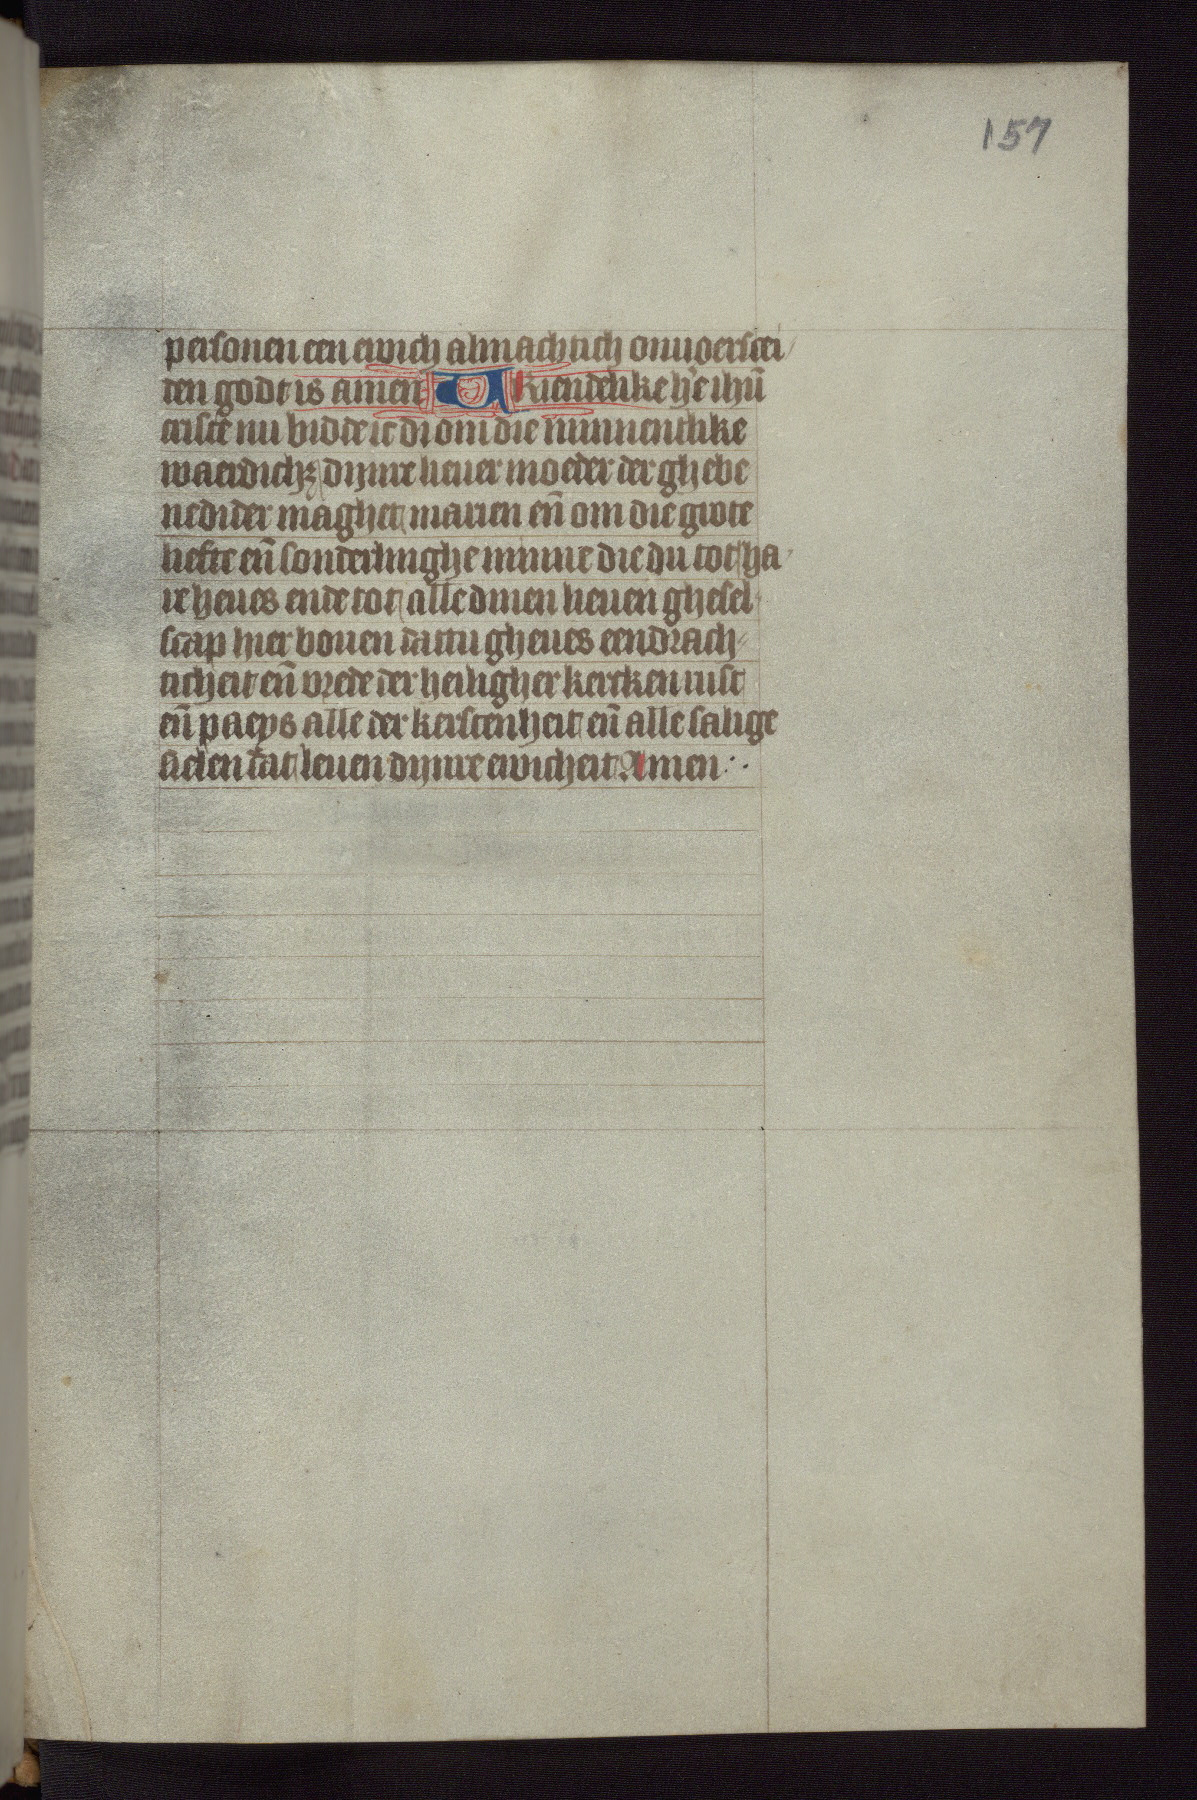 157
personen een ewich almachtich onuversceì
den godt is amen Vriendelike he᷎ ihū
criste nu bidde ic di om die minnentlike
waerdichꝫ dijnre lieuer moeder der ghebe
nedider maghet marien en̄ om die grote
liefte en̄ sonderlinghe minne die du totsha
re heues ende tot alle dinen lieuen ghesel
scap hier bouen dattu gheues eendrach
ticheit en̄ vrede der heiligher kercken rust
en̄ paeys alle der kerstenheit en̄ alle salige
sielen dat leuen dijnre ewicheit Amen